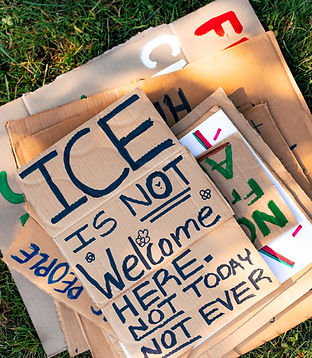 ICE
IS NOT
Welcome
HERE.
NOT TODAY
NOT EVER
PEOPLE
NO
FA